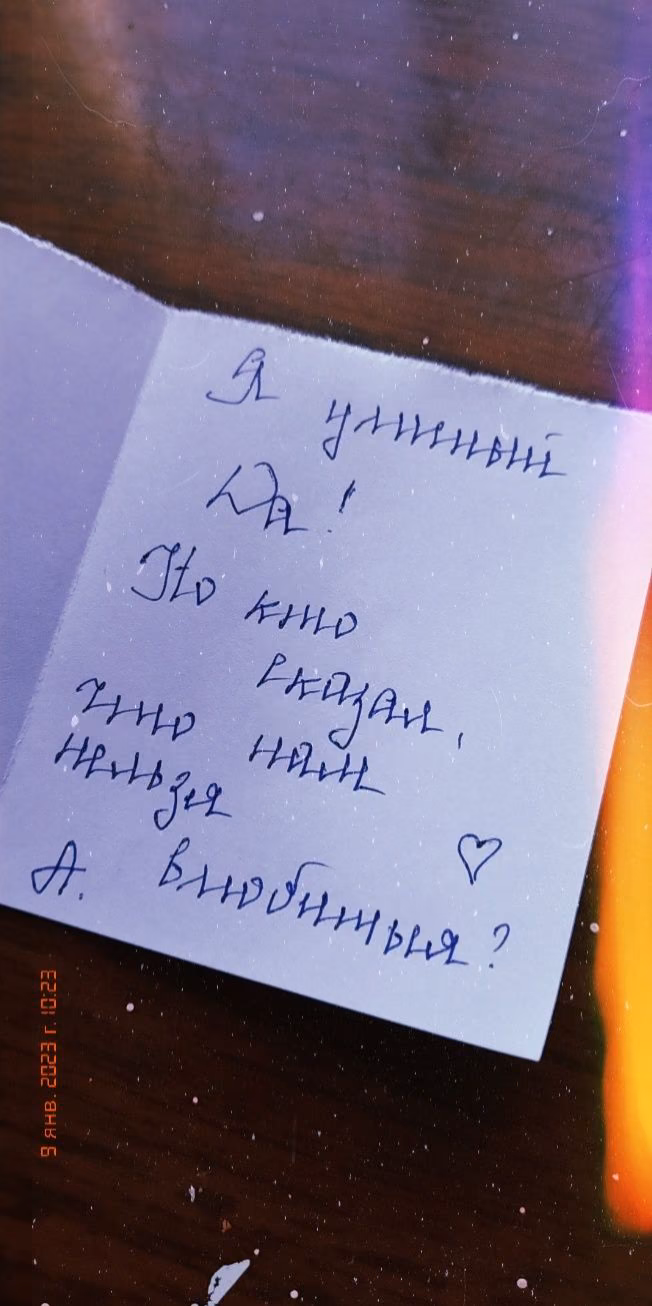 Я умный
Да!
Но кто
сказал,
что нам
нельзя
А. влюбиться?
9 янв. 2023 г. 10:23